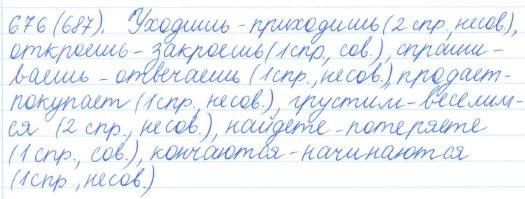 676 (687). Уходишь - приходишь (2 спр, несов),
откроешь - закроешь (1спр, сов.), спраши -
ваешь - отвечаешь (1спр., несов.), продает-
покупает (1спр, несов.), грустим - веселим-
ся (2 спр., несов.), найдете - потеряете
(1 спр., сов.), кончаются - начинаются
(1спр., несов.)